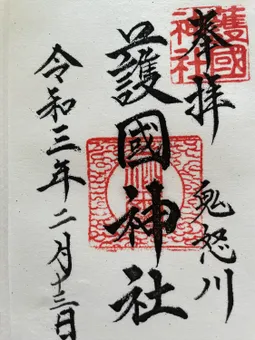 奉拝
鬼怒川
護國神社
令和三年二月十三日
護國神社